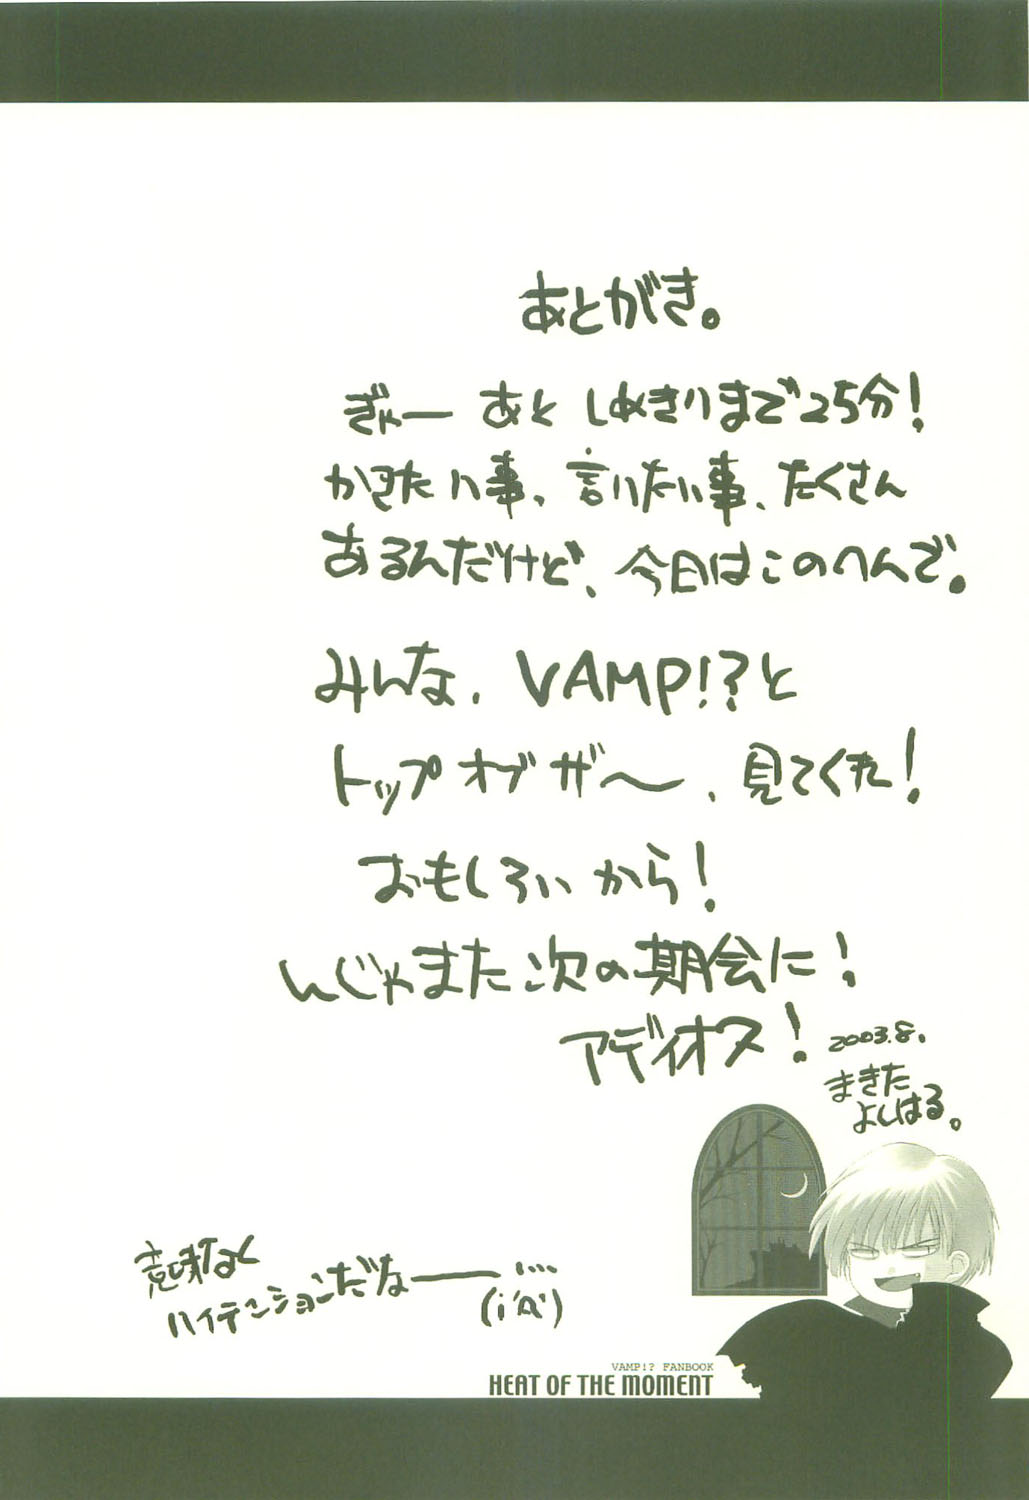 あとがき。
ぎゃー あと しめきりまで25分！
かきたい事、言いたい事、たくさん
あるんだけど、今日はこのへんで。
みんな、VAMP!?と
トップオブザ〜、見てくれ！
おもしろいから！
んじゃまた次の期会に！
アディオス！
2003.8.
まきた
よしはる。
意味なく
ハイテンションだなー……
(;´Д`)
VAMP!? FANBOOK
HEAT OF THE MOMENT